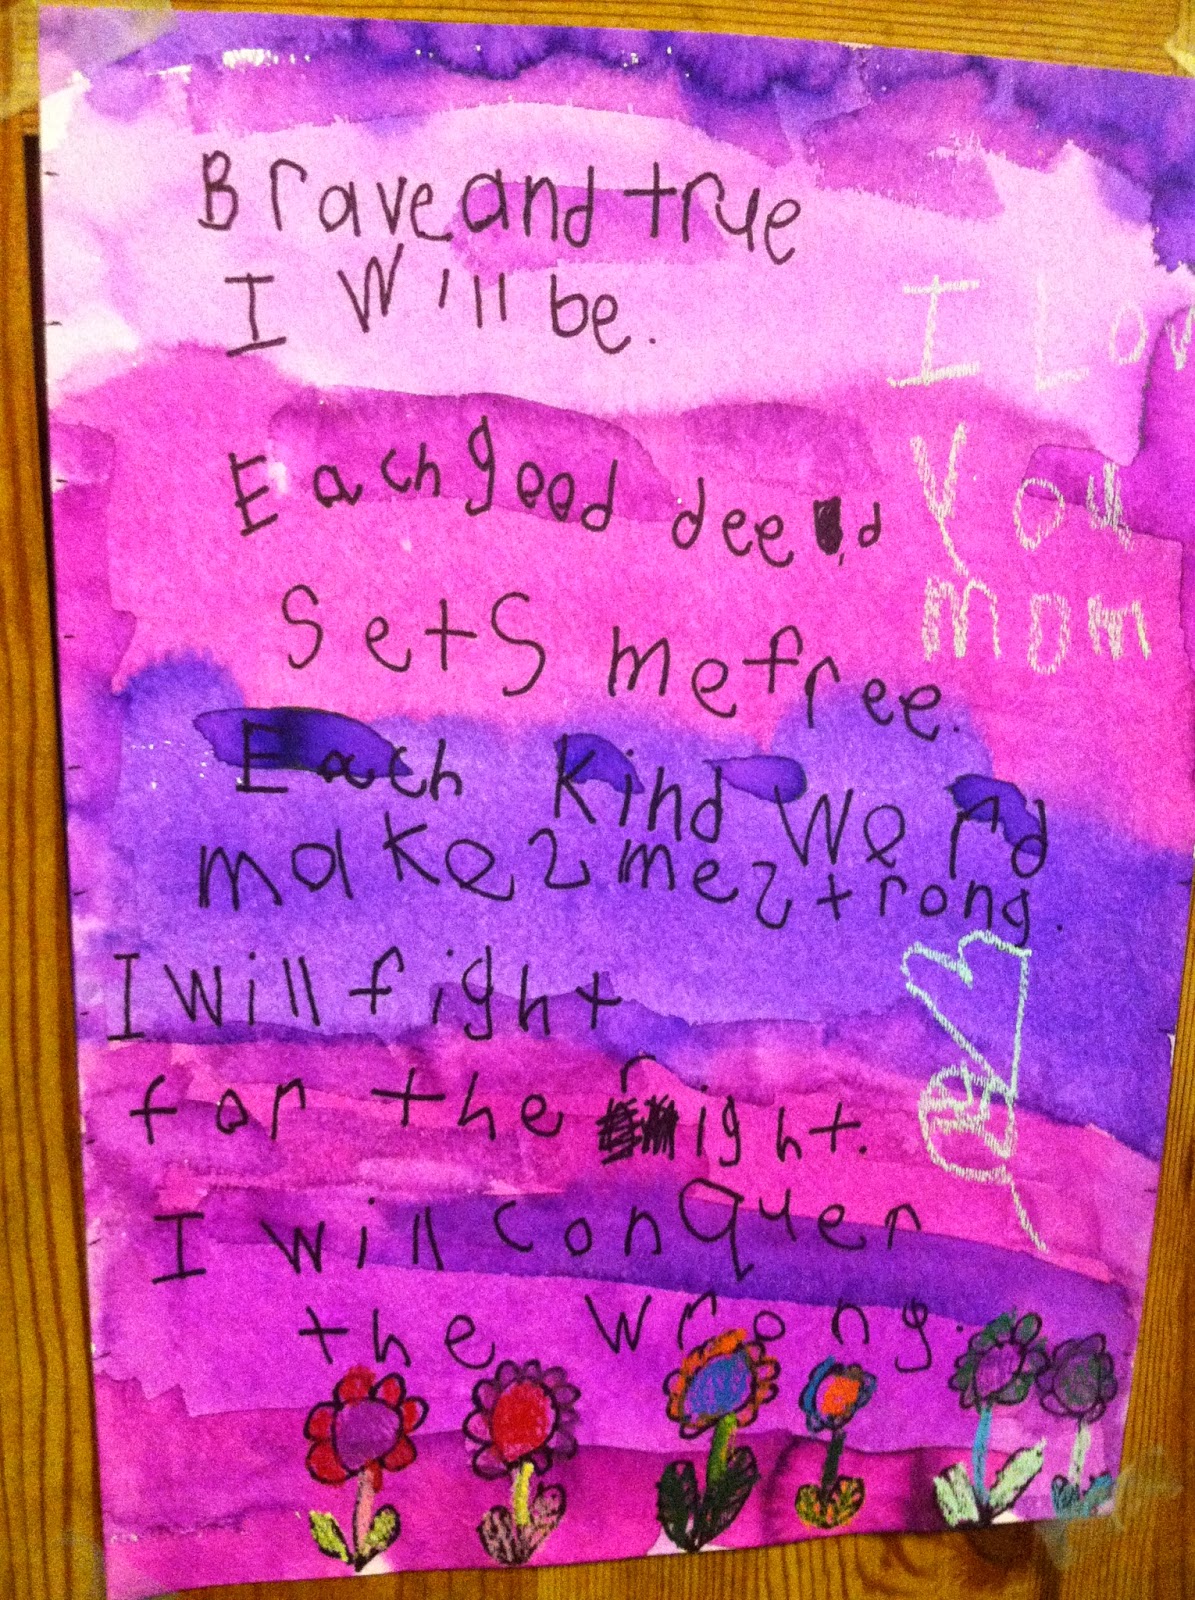 Brave and true
I Will be.
Each good deed
Sets me free.
Each Kind Word
makes me strong.
I Will fight
for the right.
I will conquer
the wrong.
I Lov
You
mom